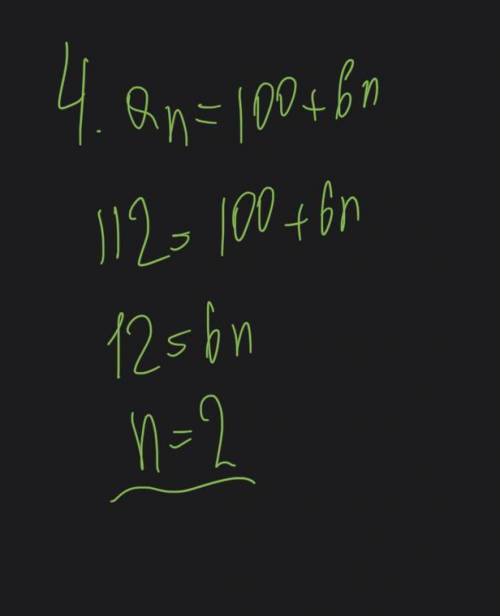 4. an = 100 + 6n
112 = 100 + 6n
12 = 6n
n = 2